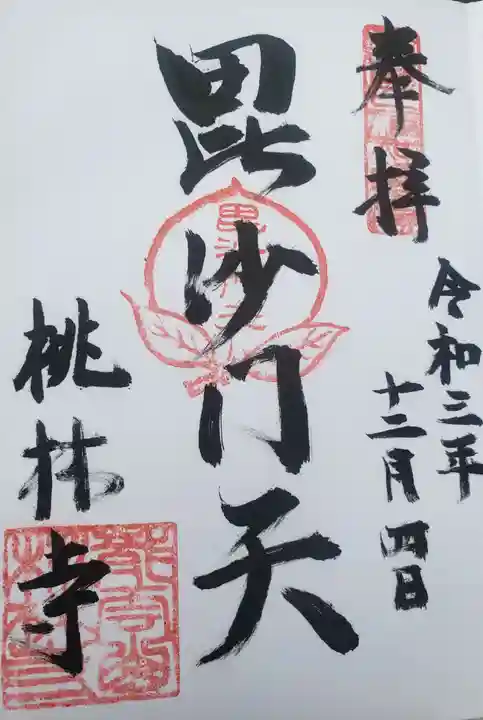 奉拝
令和三年
十二月四日
毘沙门天
桃林寺